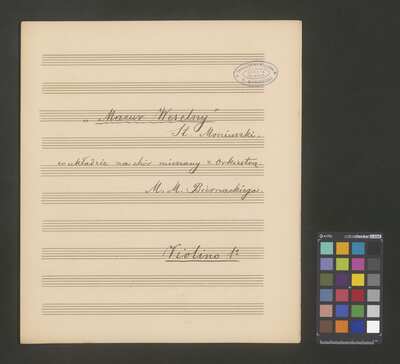 „Mazur Weselny"
St. Moniuszki.
w układzie na chór mieszany z Orkiestrą
M. M. Biernackiego.
Violino 1º